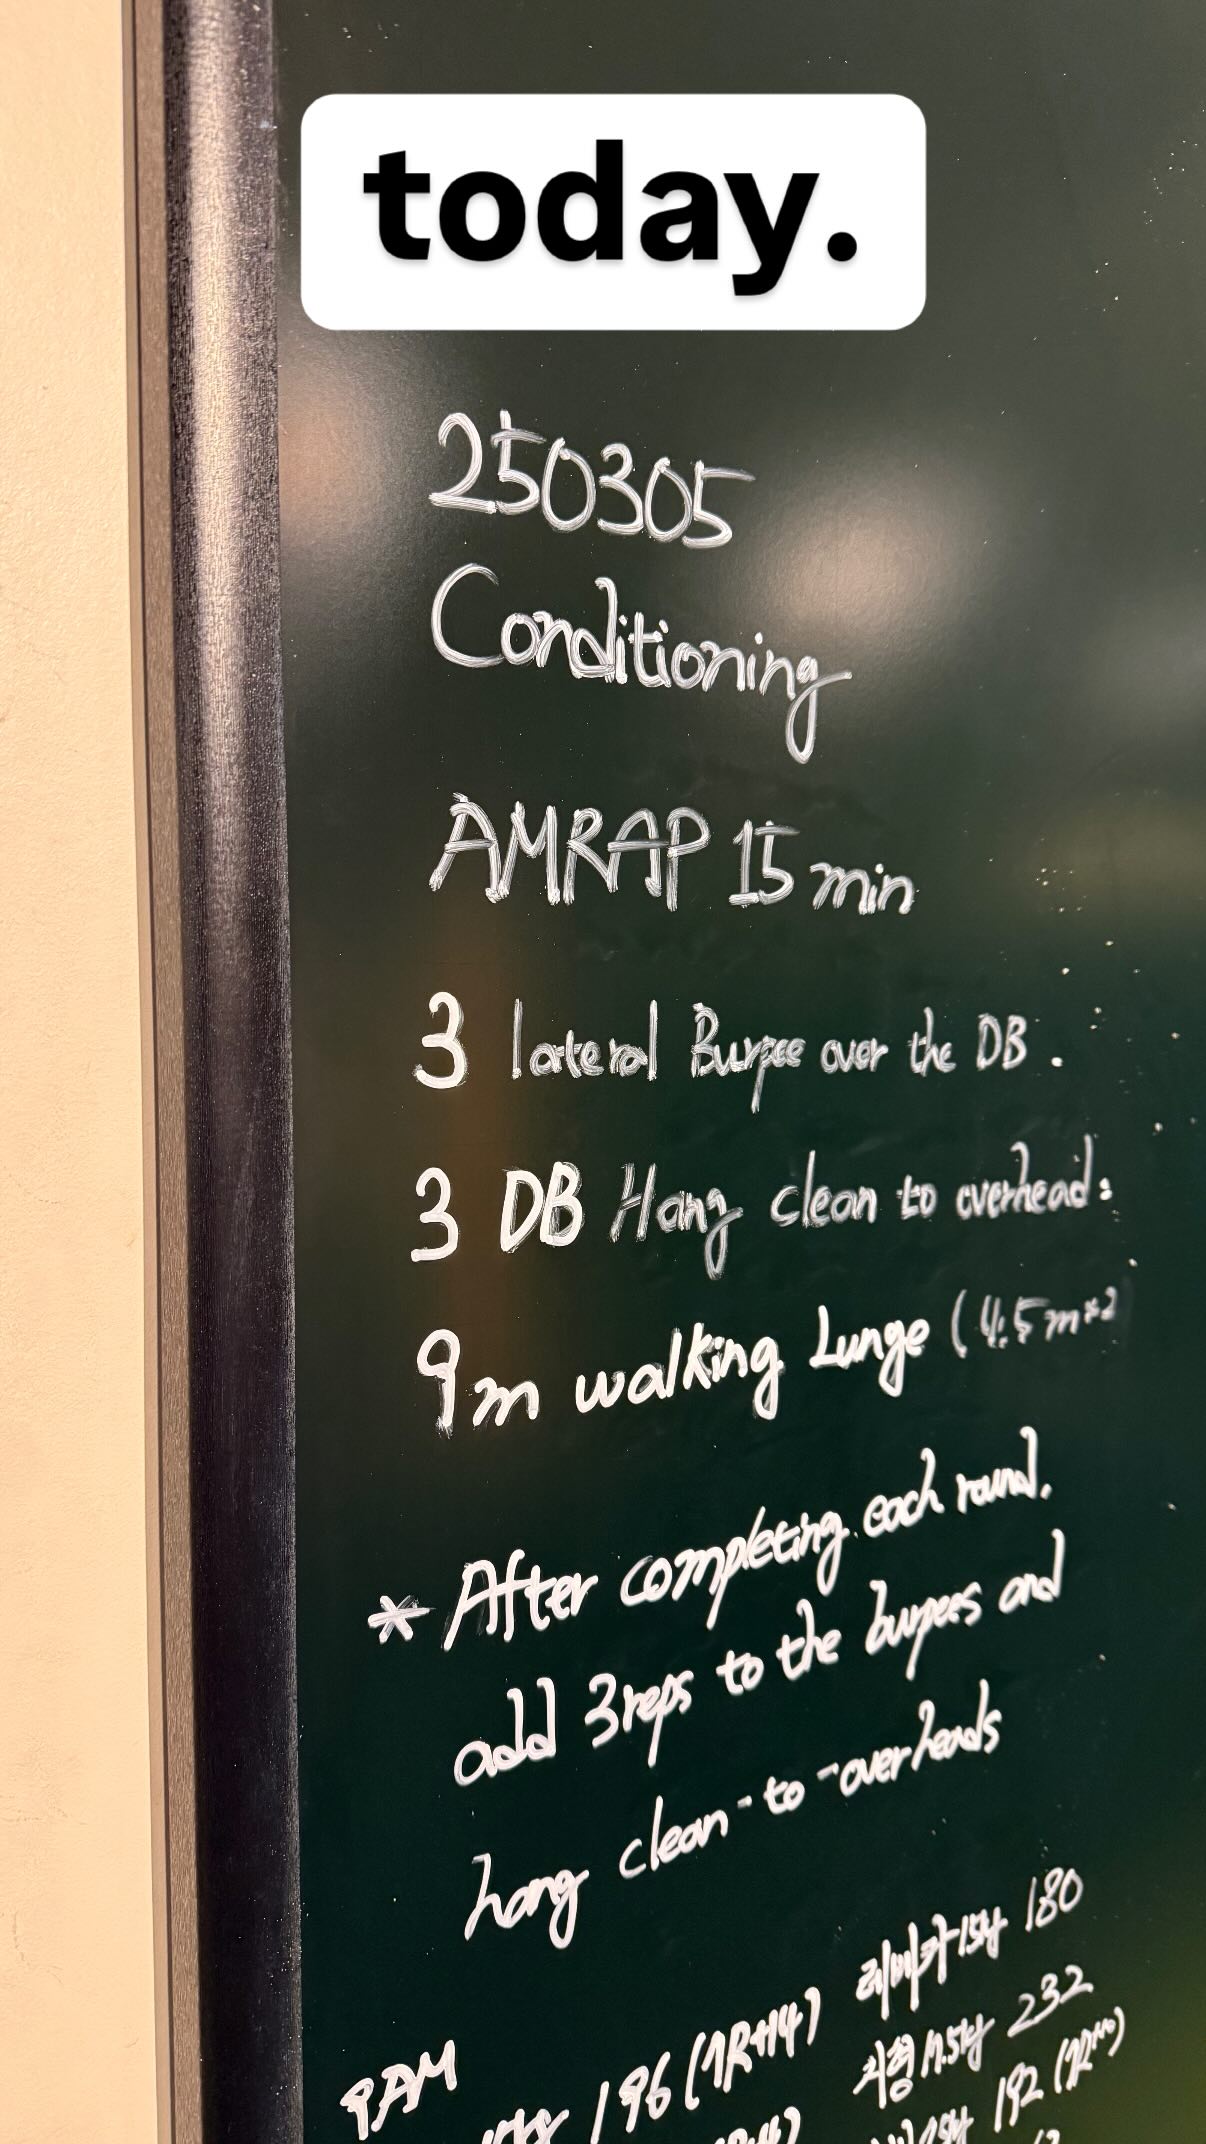 today.
250305
Conditioning
AMRAP 15min
3 lateral Burpee over the DB.
3 DB Hang clean to overhead.
9m walking Lunge (4.5m*2
* After completing each round.
add 3reps to the burpees and
hang clean-to-overheads
9AM
196 (7R+14)
180
232
192